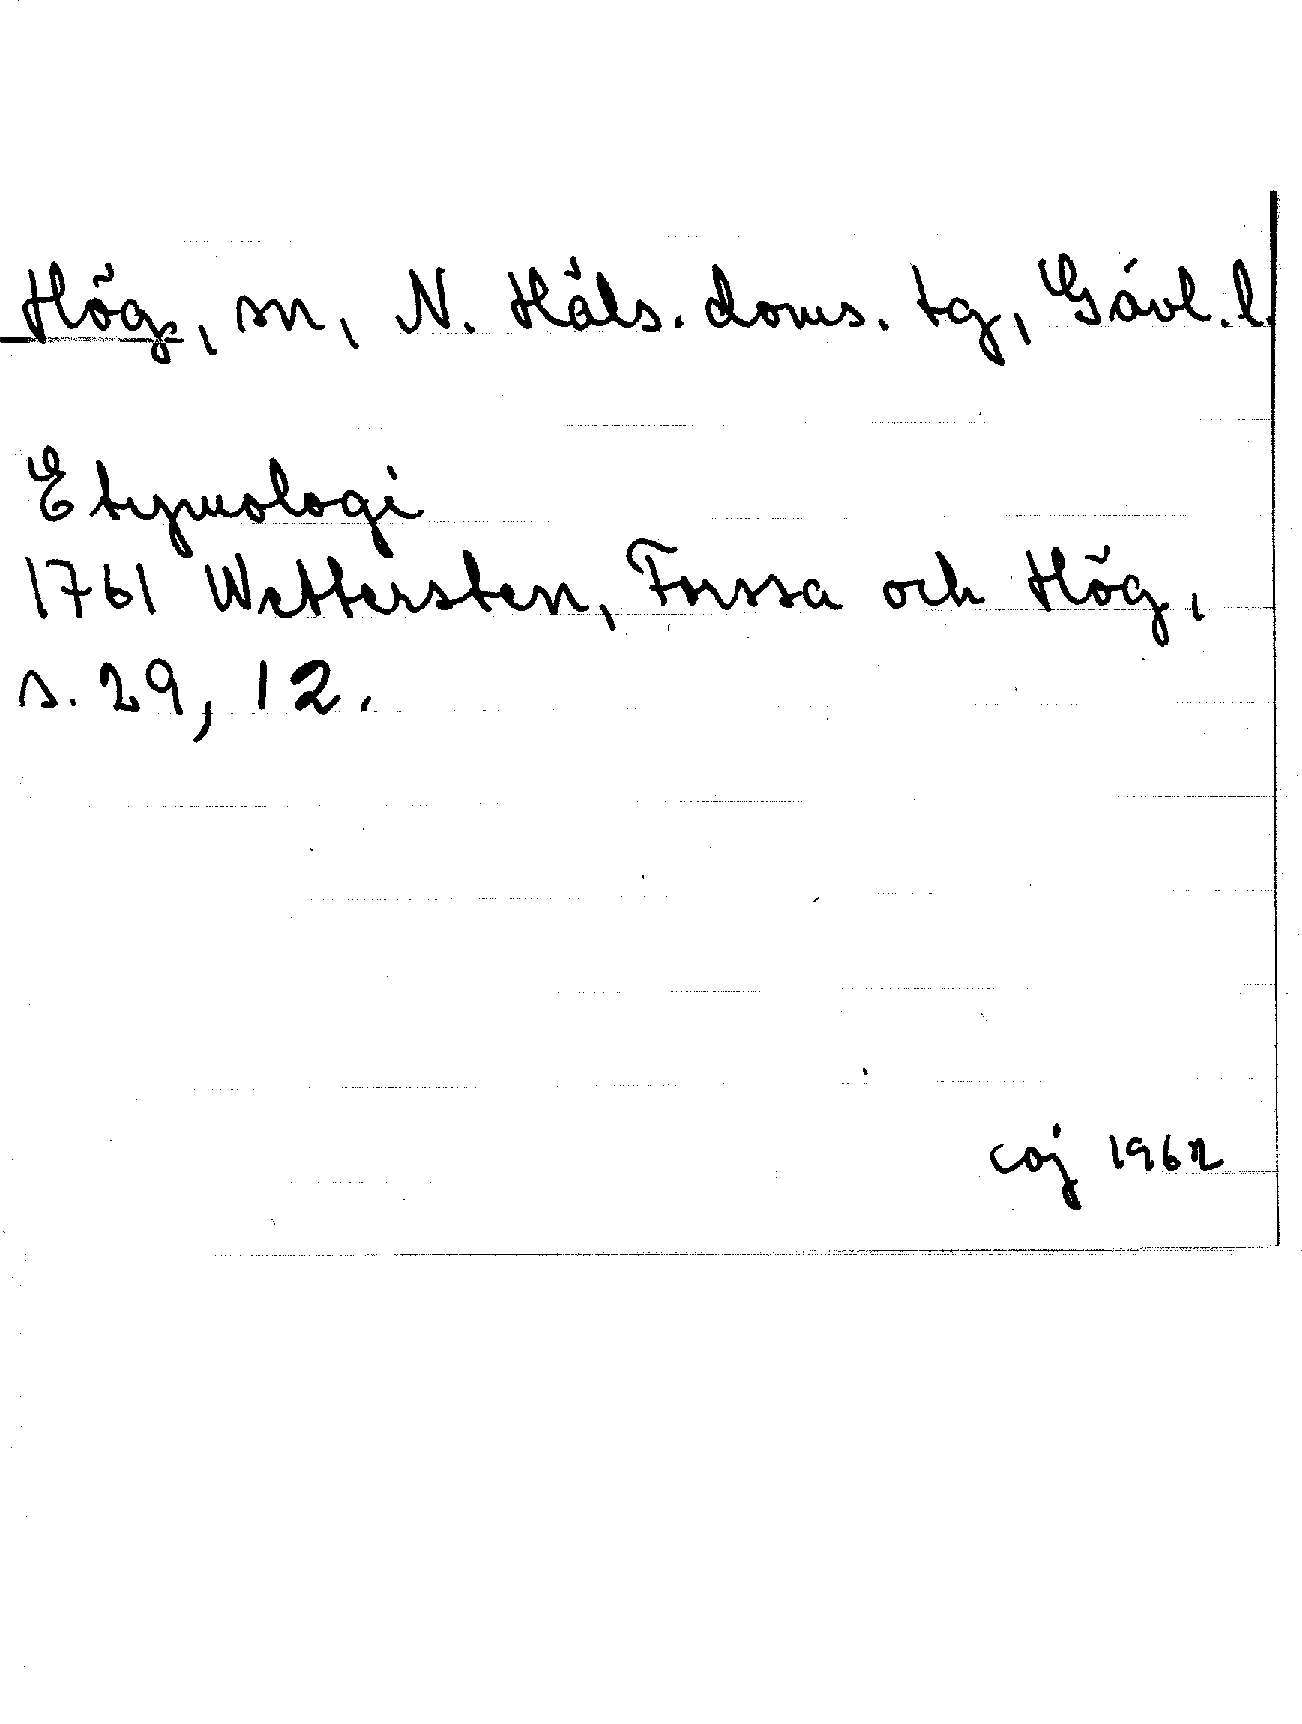 Hög, sn, N. Häls. doms. tg, Gävl. l.
Etymologi
1761 Wettersten, Forssa och Hög,
s. 29, 12.
coj 1962